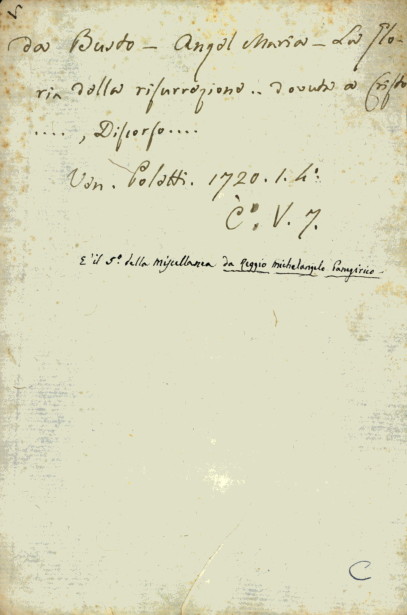 da Busto – Angel Maria – La Glo-
ria della risurrezione .. dovuta à Cristo
...., Discorso....
Ven. Poletti. 1720. 1. 4º.
C. V. 7.
E' il 5º della miscellanea da Reggio Michelangelo Panegirico –
C